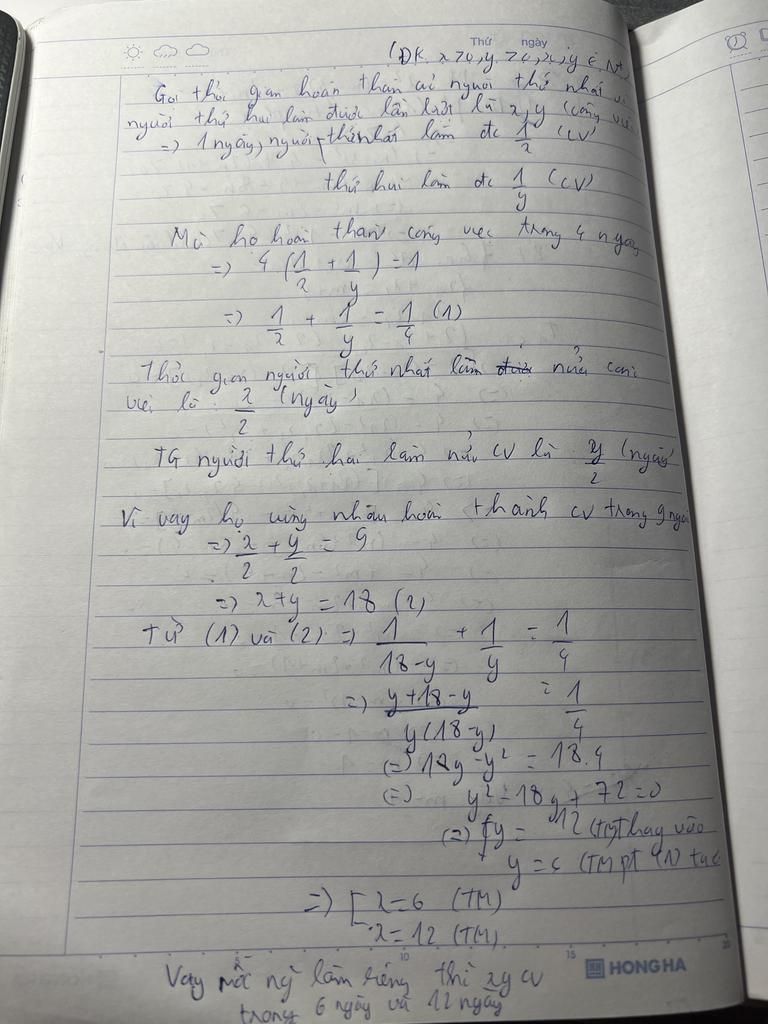 Thứ ngày
(ĐK. x>0, y>0, x, y ∈ N*)
Gọi thời gian hoàn thàn củ người thứ nhất và
người thứ hai làm được lần lượt là x, y (công việc
=> 1 ngày, người thứ nhất làm đc 1/x (CV)
thứ hai làm đc 1/y (CV)
Mà họ hoàn thàn công việc trong 4 ngày
=> 4 (1/x + 1/y) = 1
=> 1/x + 1/y = 1/4 (1)
Thời gian người thứ nhất làm nửa
việc là x/2 (ngày)
TG người thứ hai làm nửa CV là y/2 (ngày)
Vì vậy họ cùng nhau hoàn thành CV trong 9 ngày
=> x/2 + y/2 = 9
=> x+y = 18 (2)
Từ (1) và (2) => 1/(18-y) + 1/y = 1/4
=> (y+18-y)/(y(18-y)) = 1/4
(=) 18y - y² = 18.4
(=) y² - 18y + 72 = 0
(=) [y = 12 (TM) thay vào
y = 6 (TM pt (1) ta đc
=> [x=6 (TM)
x=12 (TM)
HONG HA
Vậy mỗi ng làm riêng thì xg CV
trong 6 ngày và 12 ngày
5 10 15 20